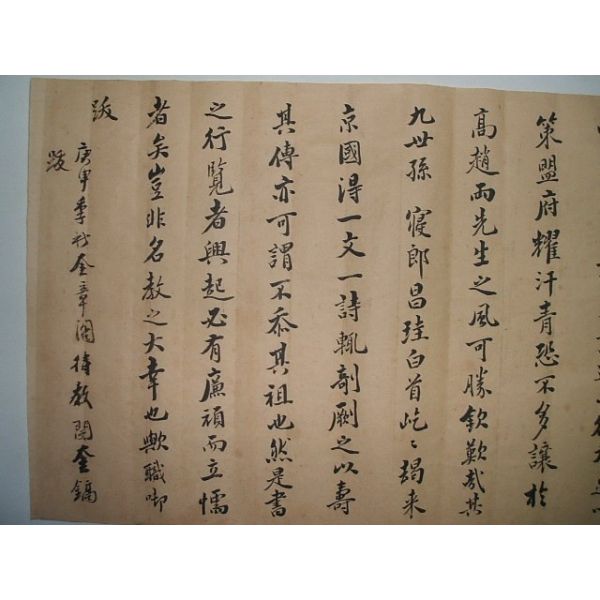 策盟府耀汗青恐不多讓於
高趙兩先生之風可勝欽歎哉其
九世孫 寢郎昌珪白首屹〻竭来
京國得一文一詩輒剞劂之以壽
其傳亦可謂不忝其祖也然是書
之行覽者興起必有廉頑而立懦
者矣豈非名教之大幸也歟職啣
跋
庚申季秋奎章閣待教閔奎鎬
跋